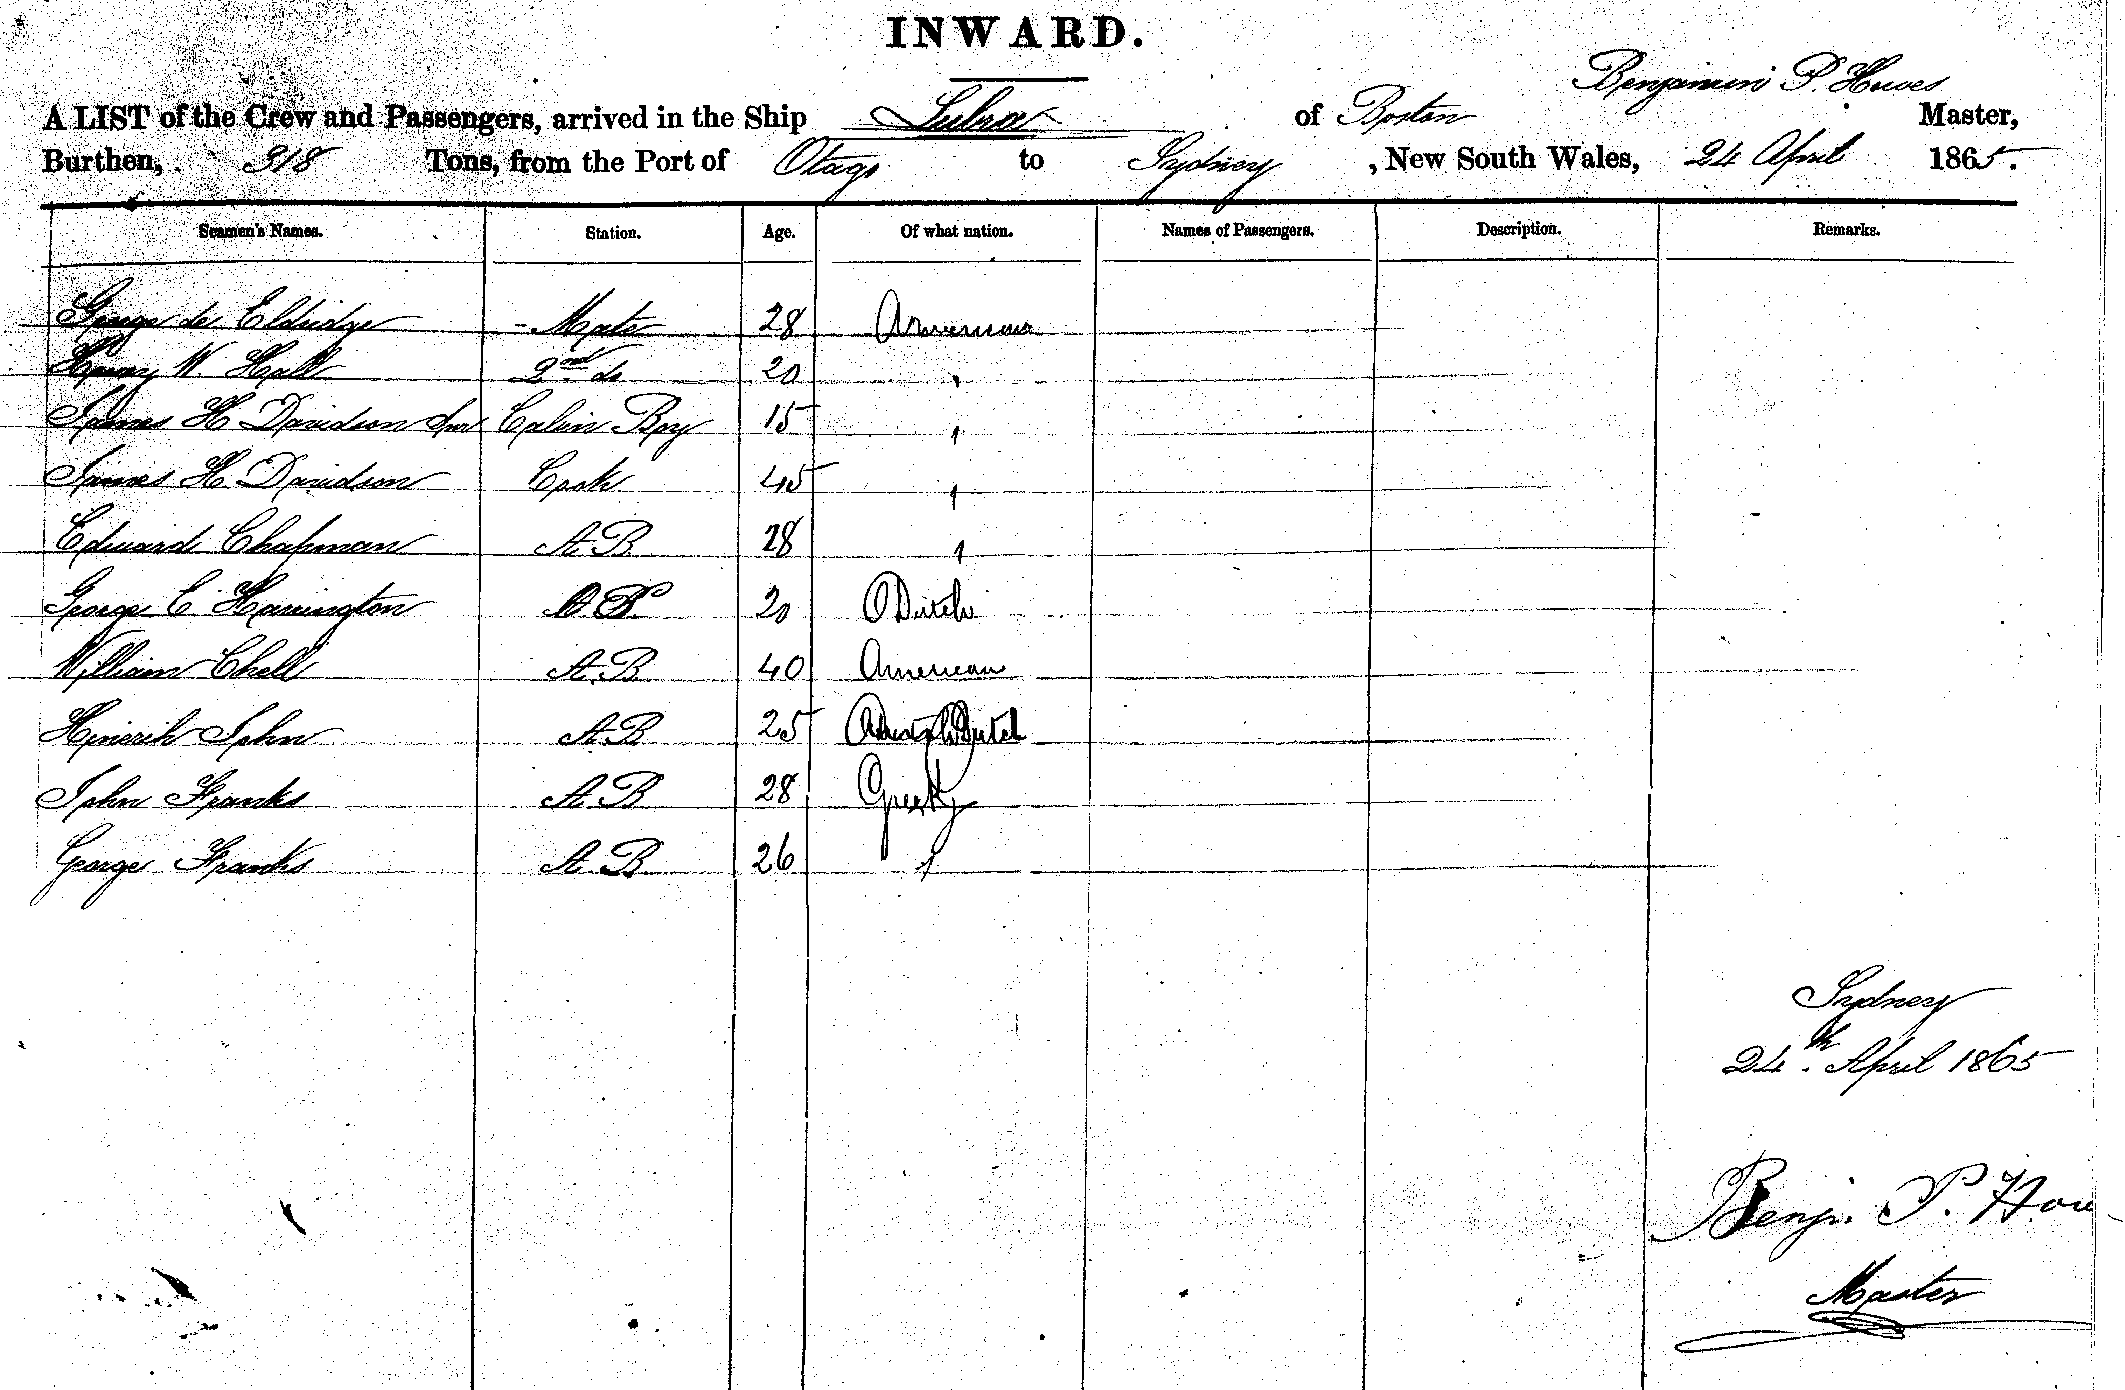 INWARD.
Benjamin P. Howes
A LIST of the Crew and Passengers, arrived in the Ship Lubra of Boston Master,
Burthen, 318 Tons, from the Port of Otago to Sydney, New South Wales, 24 April 1865.
Seamen's Names. Station. Age. Of what nation. Names of Passengers. Description. Remarks.
George de Eldridge Mate 28 American
Henry W. Hall 2nd do 20 "
James H Davidson Junr Cabin Boy 15 "
James H. Davidson Cook 45 "
Edward Chapman A.B 28 "
George C Harrington 20 Dutch
William Chell A.B 40 American
Hinerik John A.B 25 Dutch
John Franks A.B 28 Greek
George Franks A.B 26 "
Sydney
24th April 1865
Benj. P. Howes
Master